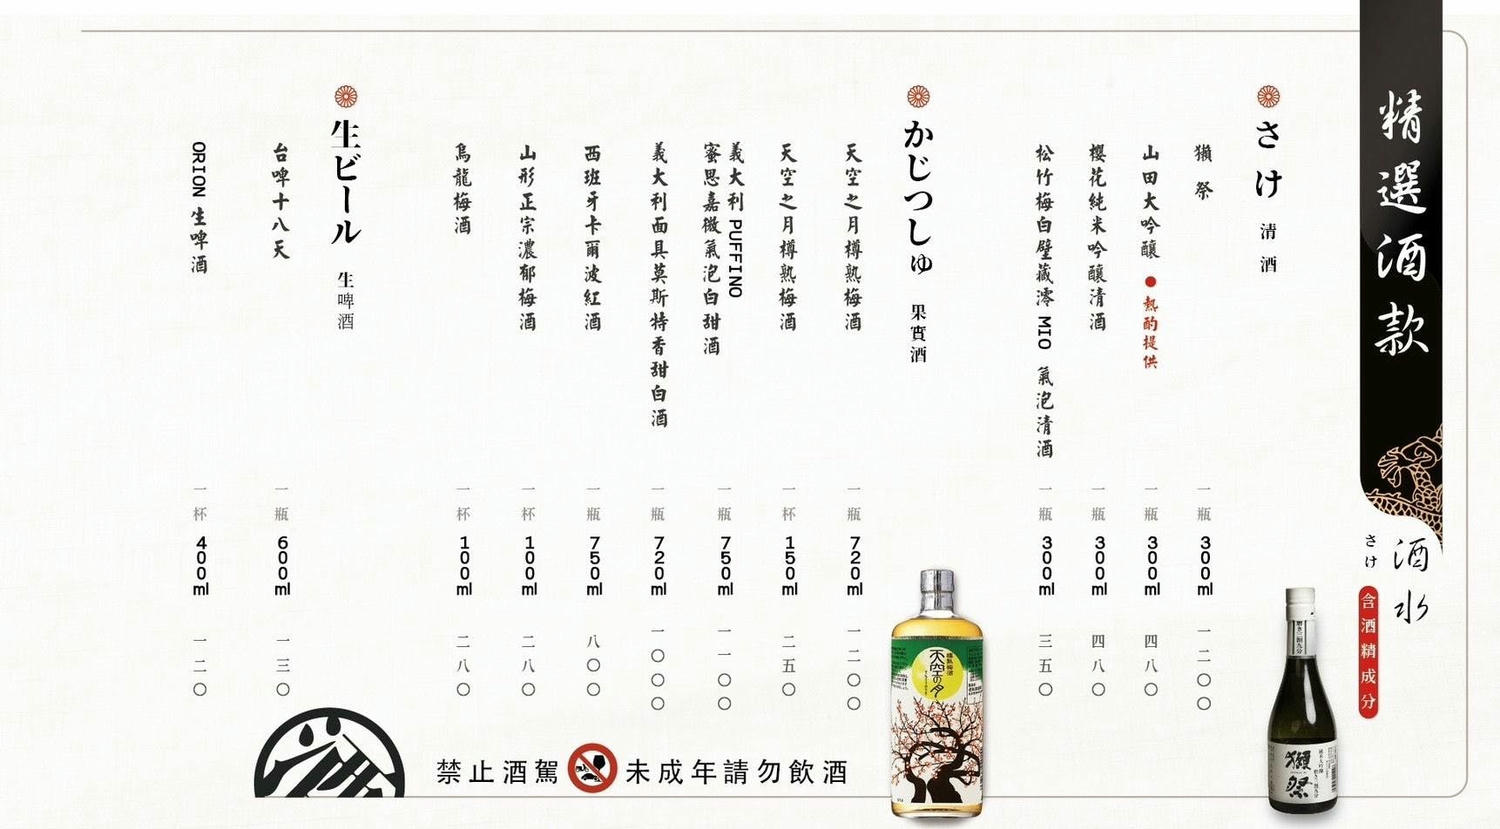 精選酒款
酒水
さけ
含酒精成分
さけ 清酒
獺祭 一瓶 300ml 一二〇〇
山田大吟釀 ●熱酌提供 一瓶 300ml 四八〇
櫻花純米吟釀清酒 一瓶 300ml 四八〇
松竹梅白壁藏澪 MIO 氣泡清酒 一瓶 300ml 三五〇
かじつしゅ 果實酒
天空之月樽熟梅酒 一瓶 720ml 一二〇〇
天空之月樽熟梅酒 一杯 150ml 二五〇
義大利 PUFFINO
蜜思嘉微氣泡白甜酒 一瓶 750ml 一一〇〇
義大利面具莫斯特香甜白酒 一瓶 720ml 一〇〇〇
西班牙卡爾波紅酒 一瓶 750ml 八〇〇
山形正宗濃郁梅酒 一杯 100ml 二八〇
烏龍梅酒 一杯 100ml 二八〇
生ビール 生啤酒
台啤十八天 一瓶 600ml 一三〇
ORION 生啤酒 一杯 400ml 一二〇
禁止酒駕 未成年請勿飲酒
樽熟梅酒
天空の月
獺祭